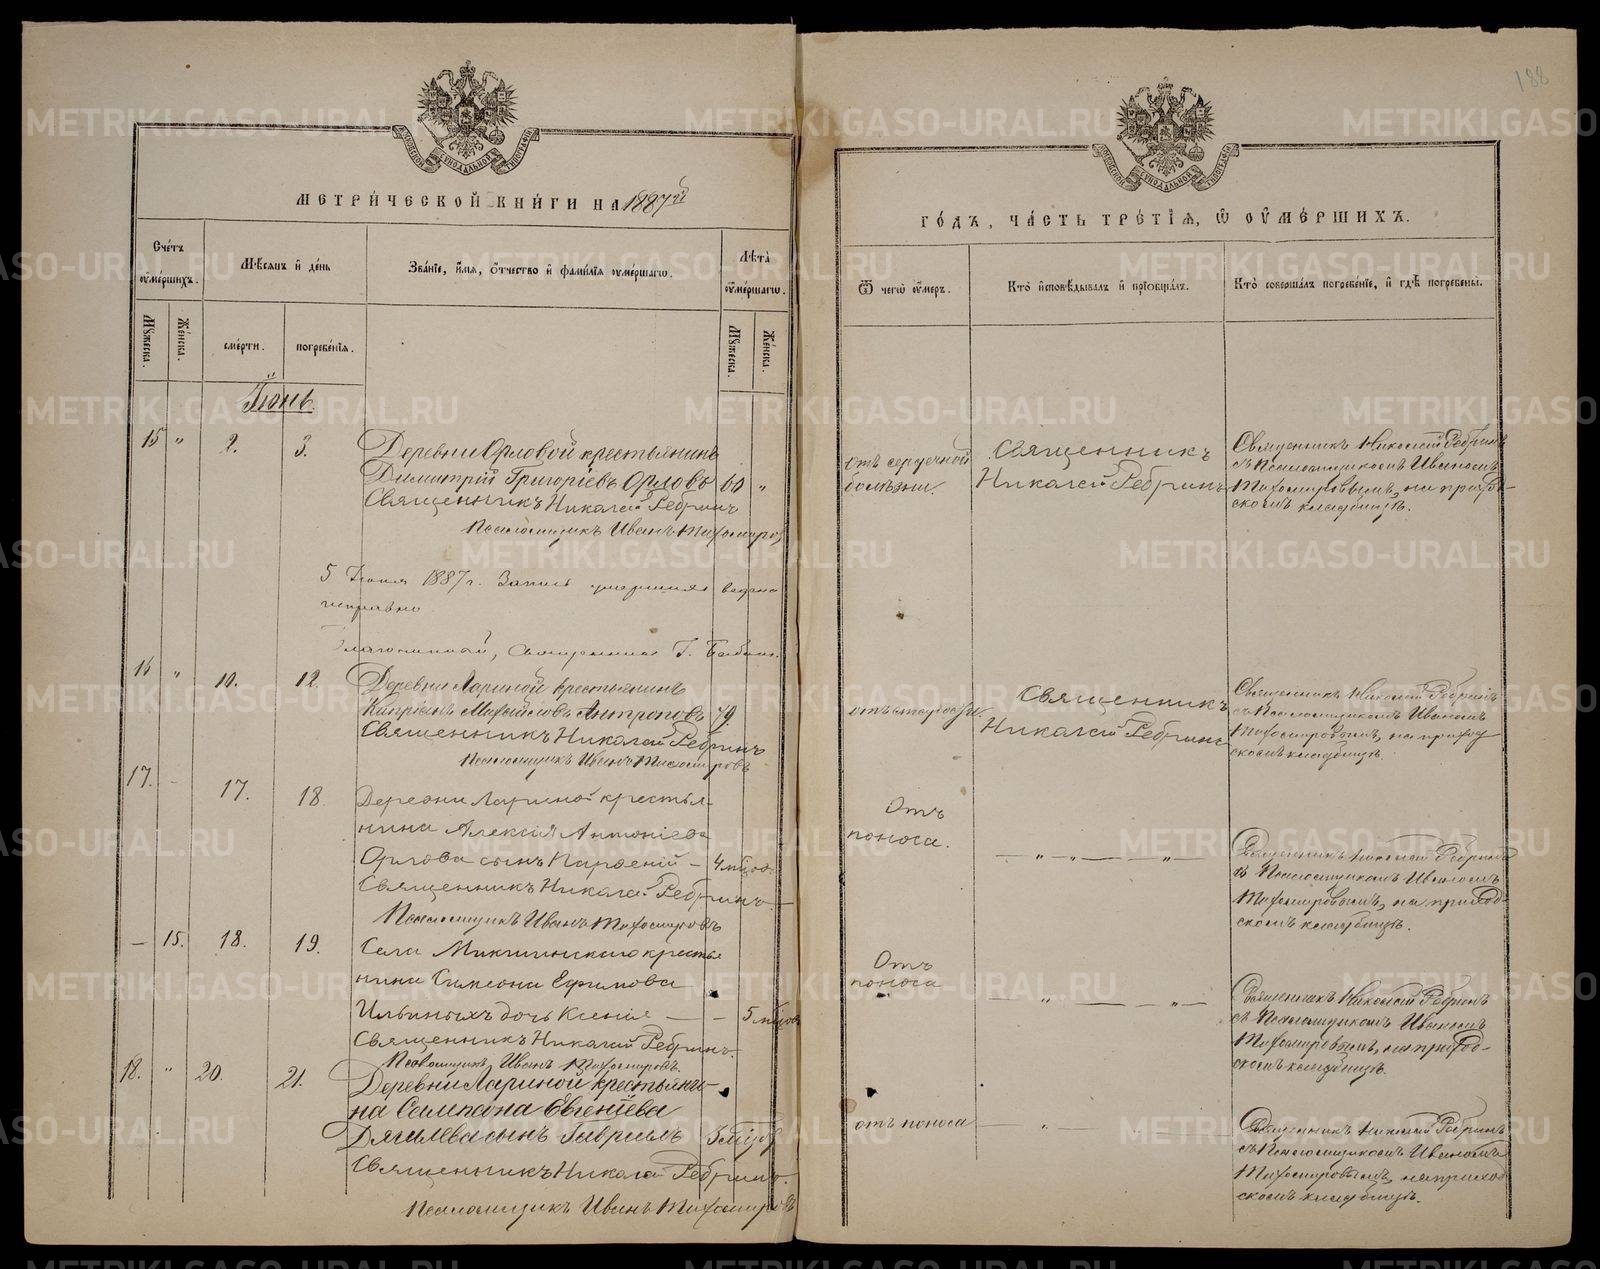 188
МОСКОВСКОЙ СѴНОДАЛЬНОЙ ТИПОГРАФІИ
МОСКОВСКОЙ СѴНОДАЛЬНОЙ ТИПОГРАФІИ
МЕТРИ́ЧЕСКОЙ КНИ́ГИ НА 1887й
ГО́ДЪ, ЧА́СТЬ ТРЕ́ТІѦ, Ѿ ОУ҆МЕ́РШИХЪ.
Сче́тъ оу҆ме́ршихъ.
Мѣ́сѧцъ и҆ де́нь
Зва́ніе, и҆́мѧ, ѻ҆́тчество и҆ фами́лїѧ оу҆ме́ршагѡ.
Лѣ́та оу҆ме́ршагѡ.
Ѿ чегѡ̀ оу҆́меръ.
Кто̀ и҆сповѣ́дывалъ и҆ прїѡбща́лъ.
Кто̀ соверша́лъ погребе́нїе, и҆ гдѣ̀ погребены̀.
Мꙋ́жеска.
Же́нска.
сме́рти.
погребе́нїѧ.
Мꙋ́жеска.
Же́нска.
Іюнь.
15 " 2. 3. Деревни Орловой крестьянинъ
Димитрій Григоріевъ Орловъ 60 "
Священникъ Николай Ребринъ
Псаломщикъ Иванъ Тихомиров
отъ сердечной
болѣзни.
Священникъ
Николай Ребринъ
Священникъ Николай Ребринъ
съ Псаломщикомъ Иваномъ
Тихомировымъ, на приход-
скомъ кладбищѣ.
5 Іюня 1887 г. Запись умершихъ ведена
исправно
Благочинный, Священник Г. Бабин.
16 " 10. 12. Деревни Лариной крестьянинъ
Кипріанъ Михайловъ Антроповъ 79
Священникъ Николай Ребринъ
Псаломщикъ Иванъ Тихомировъ
отъ старости
Священникъ
Николай Ребринъ
Священникъ Николай Ребринъ
съ Псаломщикомъ Иваномъ
Тихомировымъ, на приход
скомъ кладбищѣ.
17. - 17. 18 Деревни Лариной крестья-
нина Алексія Антоніева
Орлова сынъ Парѳеній - 4 мѣцов
Священникъ Николай Ребринъ.
Псаломщикъ Иванъ Тихомировъ
Отъ
поноса.
— " — " — " —
Священникъ Николай Ребринъ
съ Псаломщикомъ Иваномъ
Тихомировымъ, на приход-
скомъ кладбищѣ.
— 15. 18. 19. Села Микшинскаго крестья
нина Симеона Ефимова
Ильиныхъ дочь Ксенія — — 5 мѣцов
Священникъ Николай Ребринъ.
Псаломщикъ Иванъ Тихомировъ.
Отъ
поноса
— " — " —
Священникъ Николай Ребринъ
съ Псаломщикомъ Иваномъ
Тихомировымъ, на приход-
скомъ кладбищѣ.
18. " 20. 21. Деревни Лариной крестьяни-
на Сампсона Евгеніева
Дягилева сынъ Гавріилъ 3 мѣцов
Священникъ Николай Ребринъ.
Псаломщикъ Иванъ Тихомировъ
отъ поноса
— " — " —
Священникъ Николай Ребринъ
съ Псаломщикомъ Иваномъ
Тихомировымъ, на приход
скомъ кладбищѣ.
METRIKI.GASO-URAL.RU